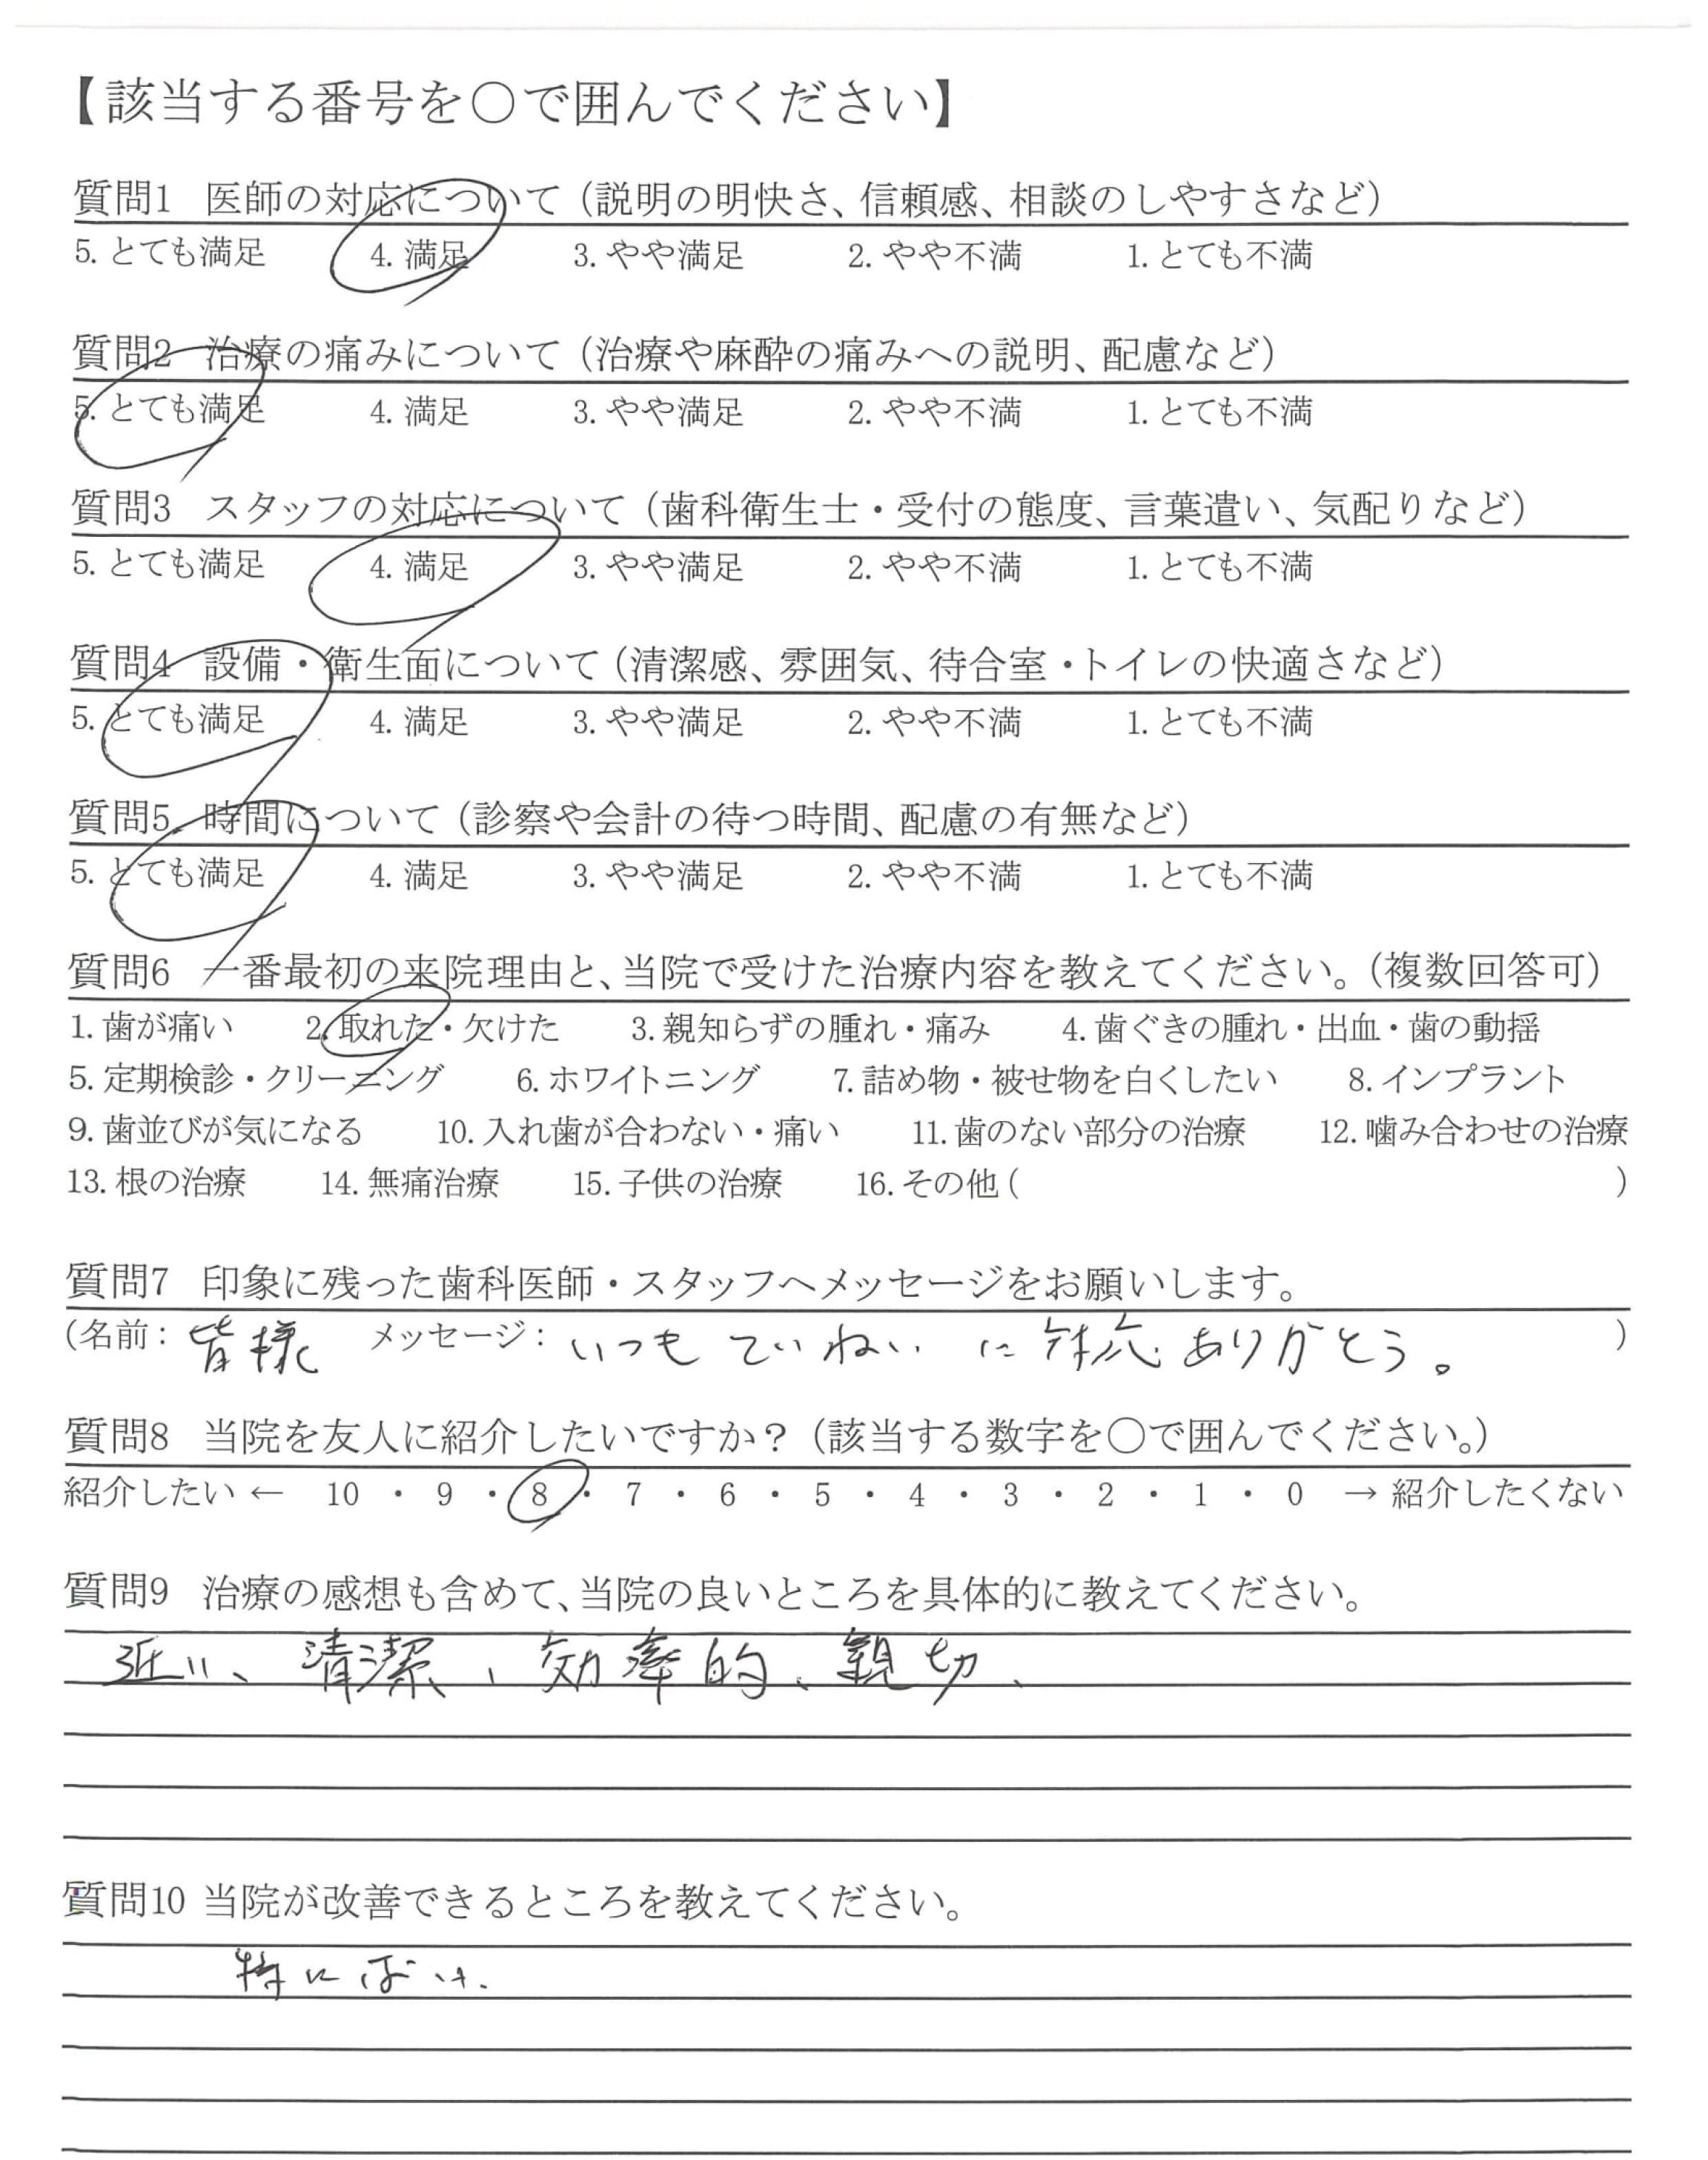 【該当する番号を〇で囲んでください】
質問1 医師の対応について（説明の明快さ、信頼感、相談のしやすさなど）
5. とても満足 4. 満足 3. やや満足 2. やや不満 1. とても不満
質問2 治療の痛みについて（治療や麻酔の痛みへの説明、配慮など）
5. とても満足 4. 満足 3. やや満足 2. やや不満 1. とても不満
質問3 スタッフの対応について（歯科衛生士・受付の態度、言葉遣い、気配りなど）
5. とても満足 4. 満足 3. やや満足 2. やや不満 1. とても不満
質問4 設備・衛生面について（清潔感、雰囲気、待合室・トイレの快適さなど）
5. とても満足 4. 満足 3. やや満足 2. やや不満 1. とても不満
質問5 時間について（診察や会計の待つ時間、配慮の有無など）
5. とても満足 4. 満足 3. やや満足 2. やや不満 1. とても不満
質問6 一番最初の来院理由と、当院で受けた治療内容を教えてください。（複数回答可）
1. 歯が痛い 2. 取れた・欠けた 3. 親知らずの腫れ・痛み 4. 歯ぐきの腫れ・出血・歯の動揺
5. 定期検診・クリーニング 6. ホワイトニング 7. 詰め物・被せ物を白くしたい 8. インプラント
9. 歯並びが気になる 10. 入れ歯が合わない・痛い 11. 歯のない部分の治療 12. 噛み合わせの治療
13. 根の治療 14. 無痛治療 15. 子供の治療 16. その他（ ）
質問7 印象に残った歯科医師・スタッフへメッセージをお願いします。
（名前：皆様 メッセージ：いつもていねいに対応ありがとう。）
質問8 当院を友人に紹介したいですか？（該当する数字を〇で囲んでください。）
紹介したい ← 10 ・ 9 ・ 8 ・ 7 ・ 6 ・ 5 ・ 4 ・ 3 ・ 2 ・ 1 ・ 0 → 紹介したくない
質問9 治療の感想も含めて、当院の良いところを具体的に教えてください。
近い、清潔、効率的、親切、
質問10 当院が改善できるところを教えてください。
特に